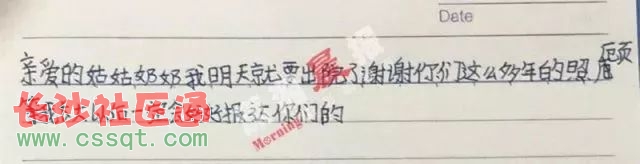 Date
亲爱的姑姑奶奶我明天就要出院了谢谢你们这么多年的照顾
等我长大以后一定会好好报达你们的
长沙社区通
www.cssqt.com
晨报
Morning